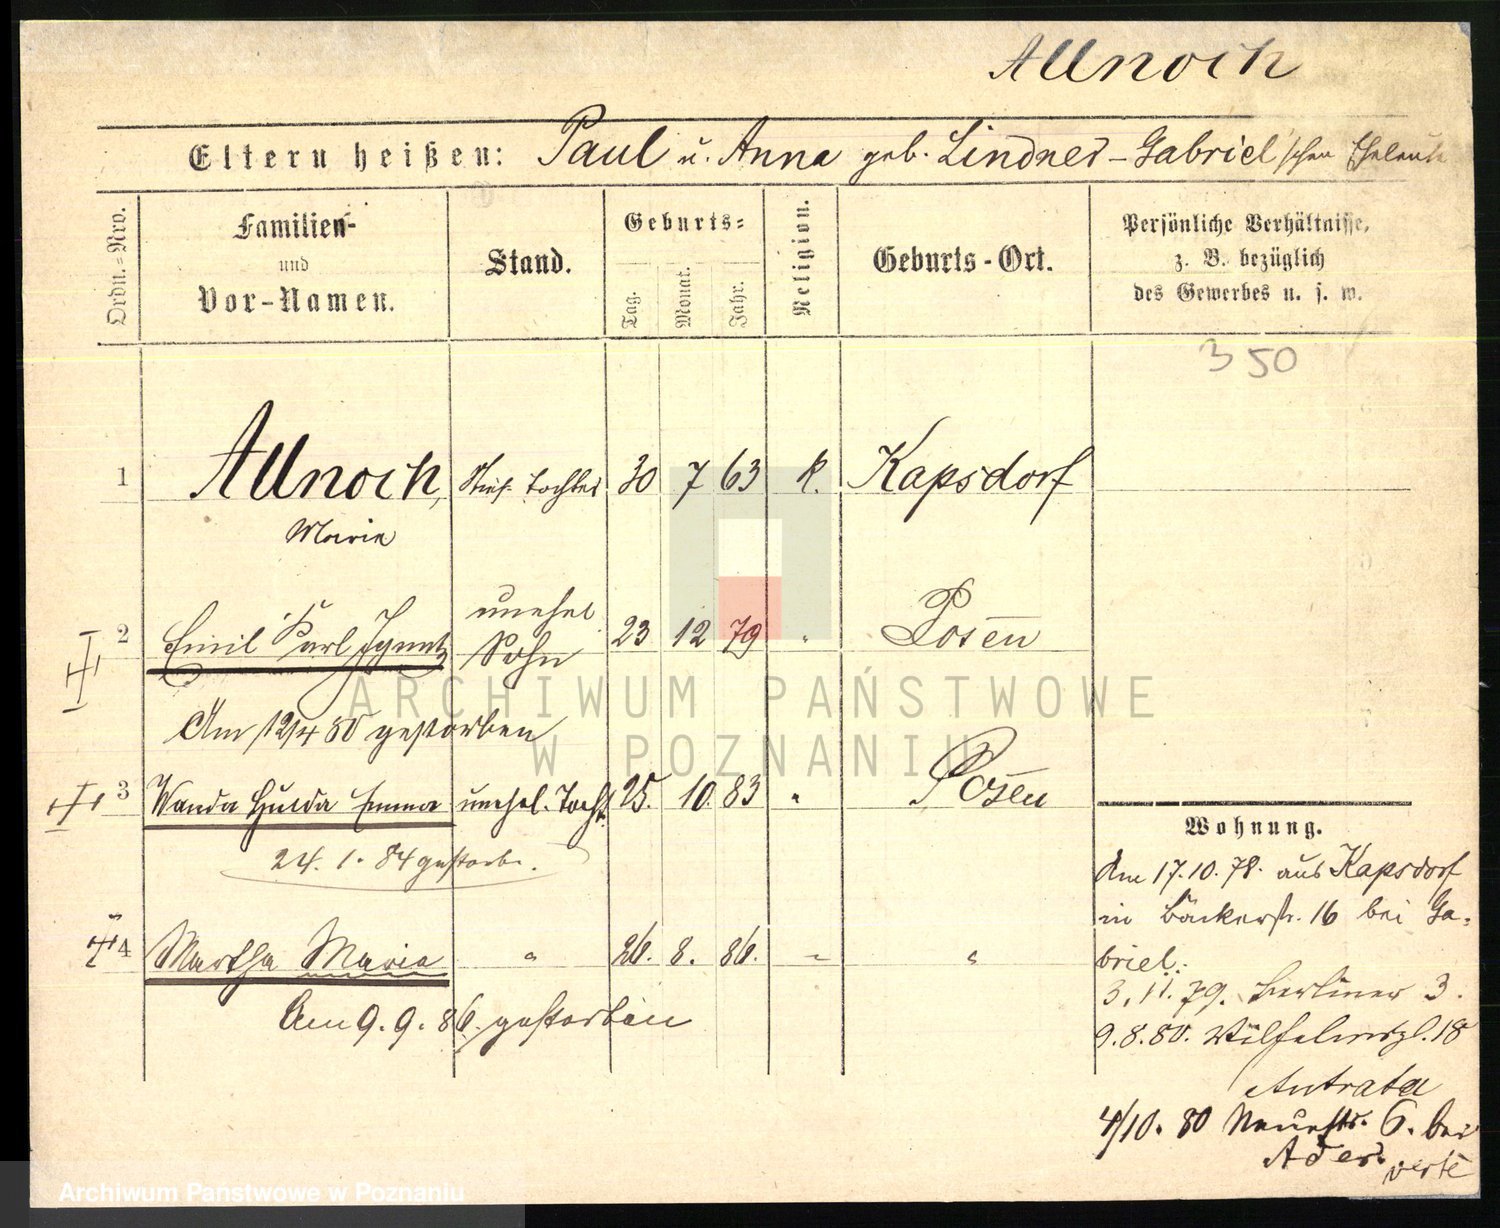 Allnoch
Eltern heißen: Paul u. Anna geb. Lindner-Gabriel'schen Eheleute
Ordn.=Nro.
Familien-
und
Vor-Namen.
Stand.
Geburts=
Tag.
Monat.
Jahr.
Religion.
Geburts-Ort.
Persönliche Verhältnisse,
z. B. bezüglich
des Gewerbes u. s. w.
350
1 Allnoch, Stief-Tochter 30 7 63 k. Kapsdorf
Marie
2 Emil Karl Ignatz unehel. Sohn 23 12 79 " Posen
Am 12/4 80 gestorben
3 Wanda Hulda Emma unehel. Tocht. 25. 10. 83 " Posen
24. 1. 84 gestorb.
4 Martha Maria " 26. 8. 86. " "
Am 9. 9. 86. gestorben
Wohnung.
Am 17.10.78. aus Kapsdorf
in Bäckerstr. 16 bei Ga-
briel.
3.11.79. Berliner 3.
9.8.80. Wilhelmspl. 18
4/10. 80 Neuestr. 6. bei
verte
ARCHIWUM PAŃSTWOWE
W POZNANIU
Archiwum Państwowe w Poznaniu